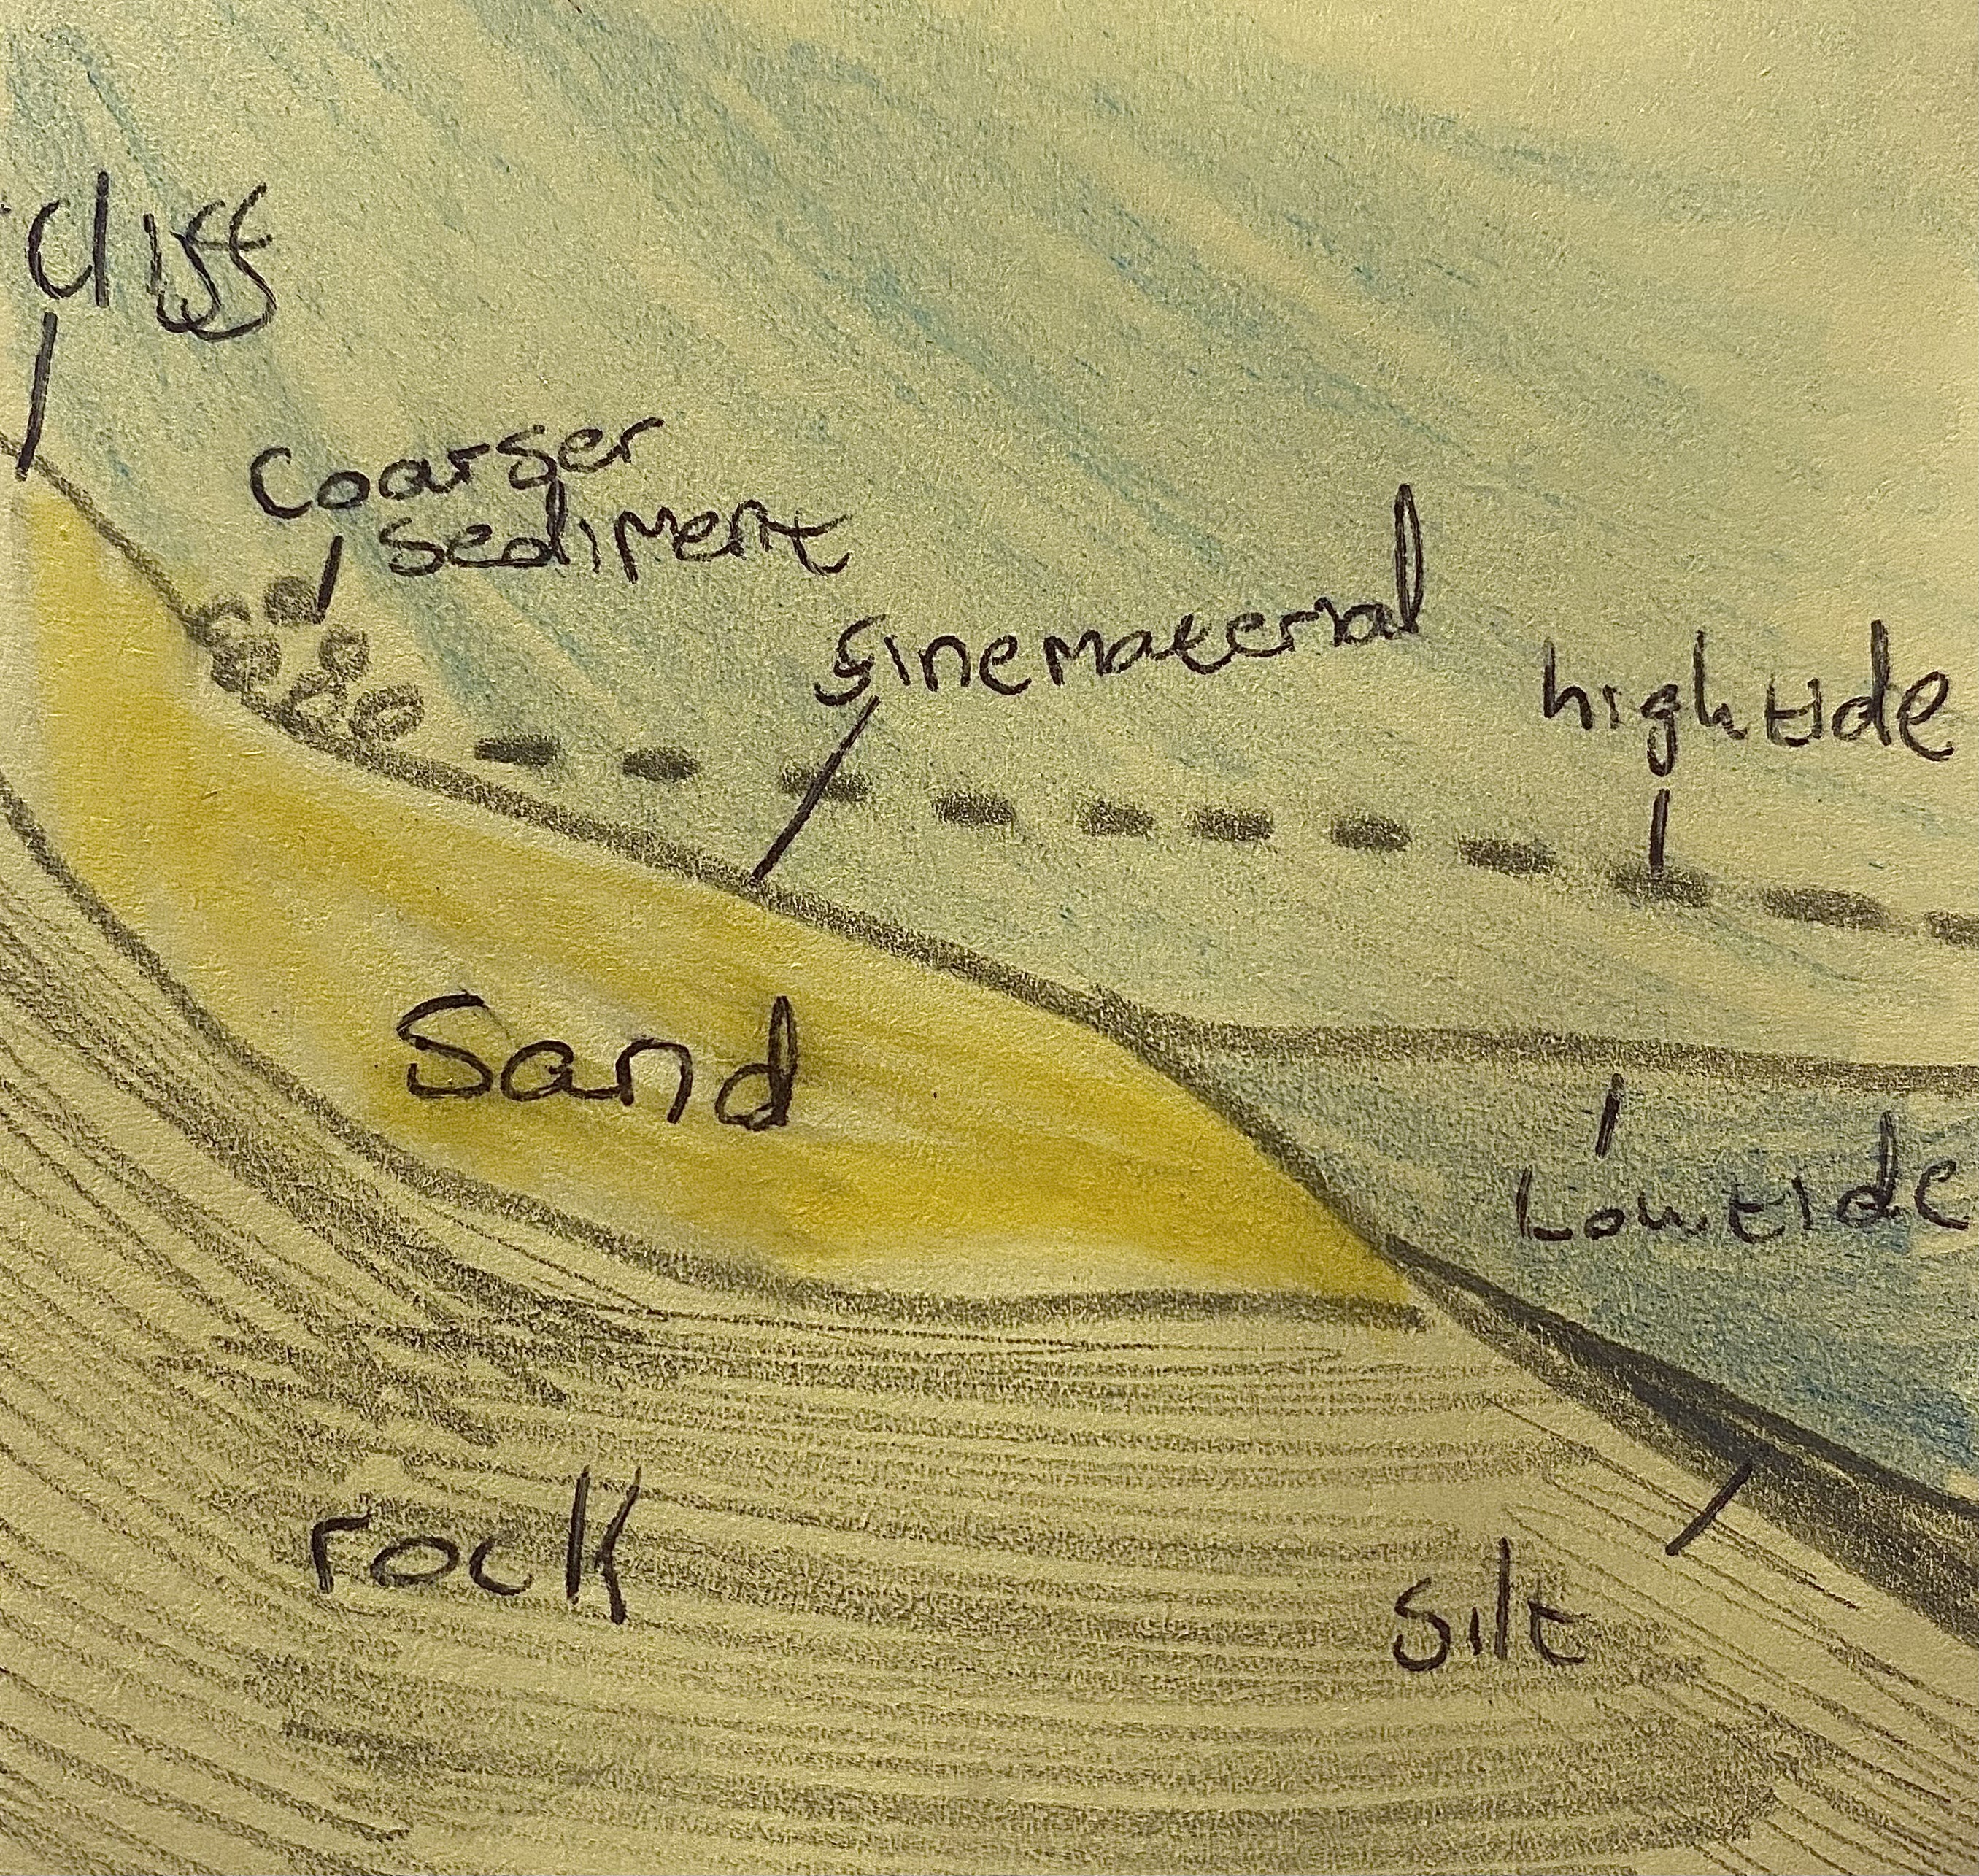 cliff
Coarser
Sediment
fine material
high tide
Low tide
Sand
rock
Silt